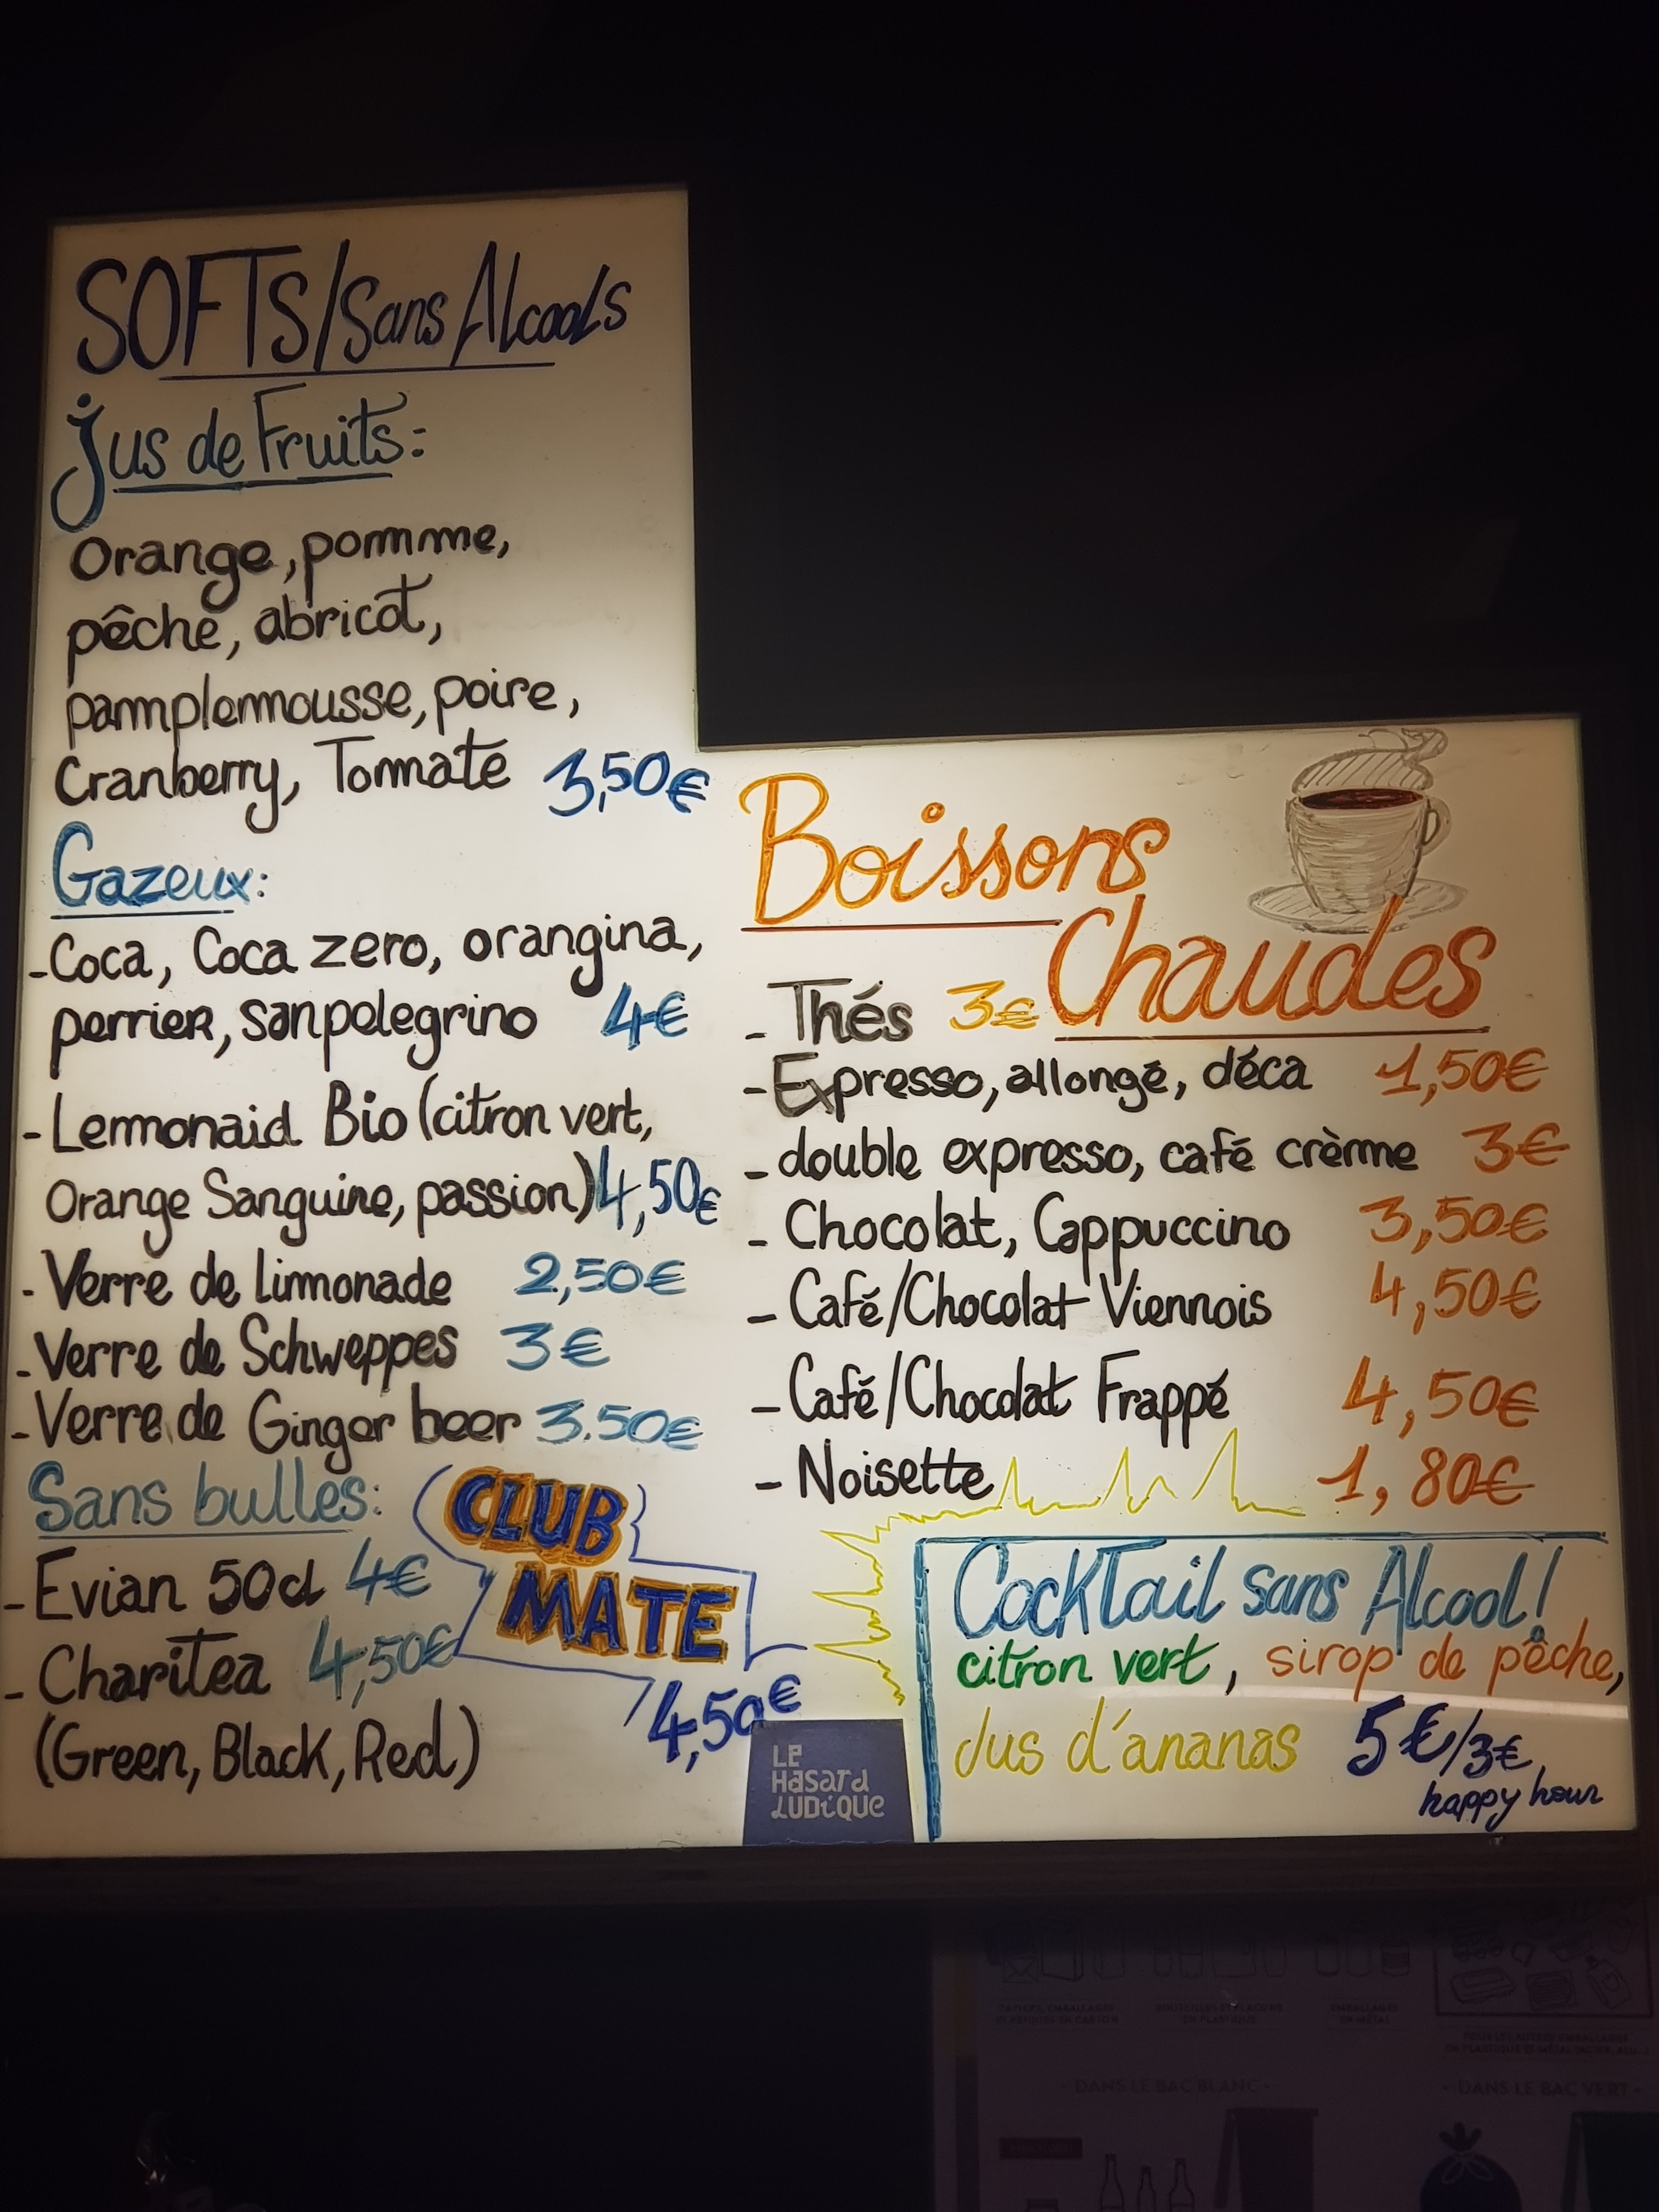 SOFTS/Sans Alcools
Jus de Fruits:
Orange, pomme,
pêche, abricot,
pamplemousse, poire,
Cranberry, Tomate 3,50€
Gazeux:
-Coca, Coca zero, orangina,
perrier, sanpelegrino 4€
- Lemonaid Bio (citron vert,
Orange Sanguine, passion) 4,50€
- Verre de Limonade 2,50€
- Verre de Schweppes 3€
- Verre de Ginger beer 3.50€
Sans bulles:
- Evian 50cl 4€
- Charitea 4,50€
(Green, Black, Red)
CLUB
MATE
4,50€
LE
HASARD
LUDIQUE
Boissons
Chaudes
- Thés 3€
- Expresso, allongé, déca 1,50€
- double expresso, café crème 3€
- Chocolat, Cappuccino 3,50€
- Café/Chocolat Viennois 4,50€
- Café/Chocolat Frappé 4,50€
- Noisette 1,80€
Cocktail sans Alcool!
citron vert, sirop de pêche,
Jus d'ananas 5€/3€
happy hour
- DANS LE BAC BLANC -
- DANS LE BAC VERT -